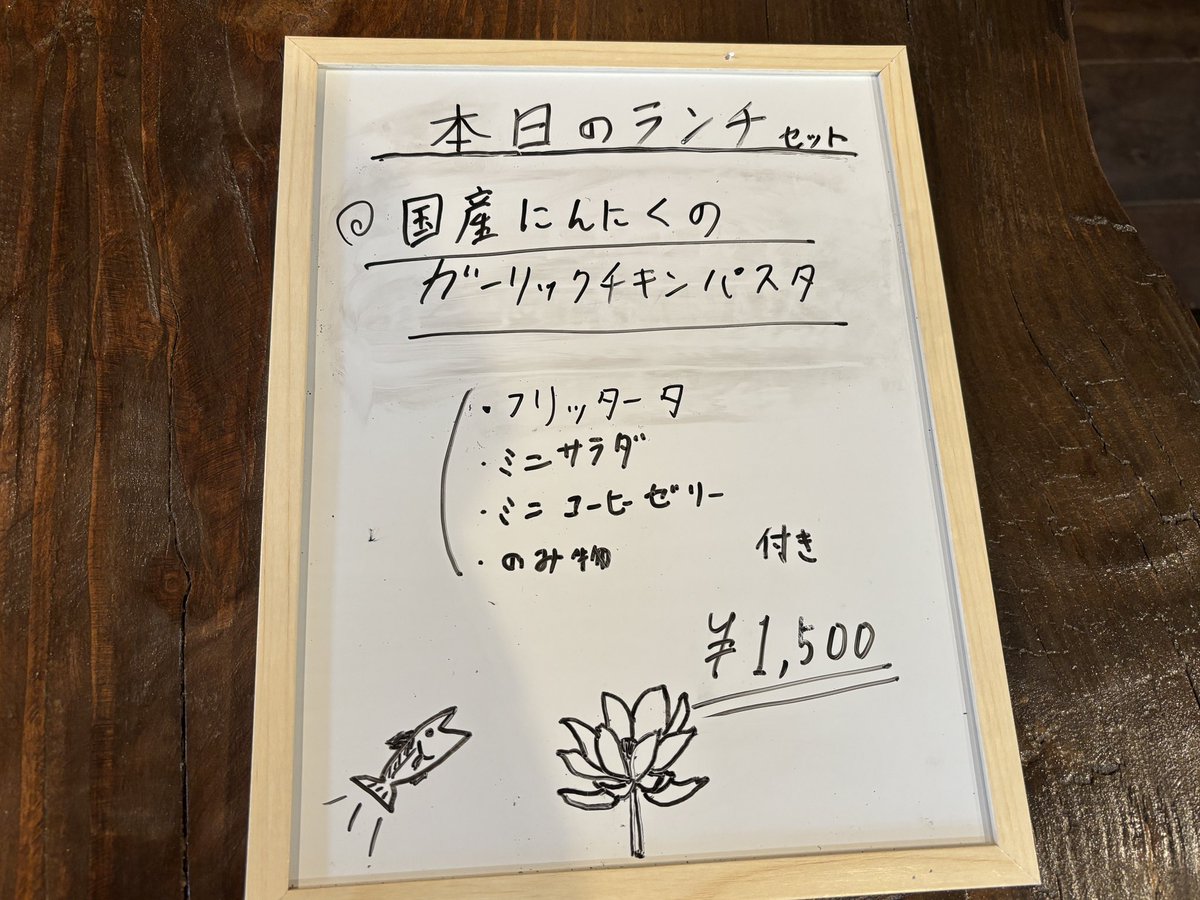 本日のランチセット
国産にんにくの
ガーリックチキンパスタ
・フリッタータ
・ミニサラダ
・ミニコーヒーゼリー
・のみ物 付き
¥1,500